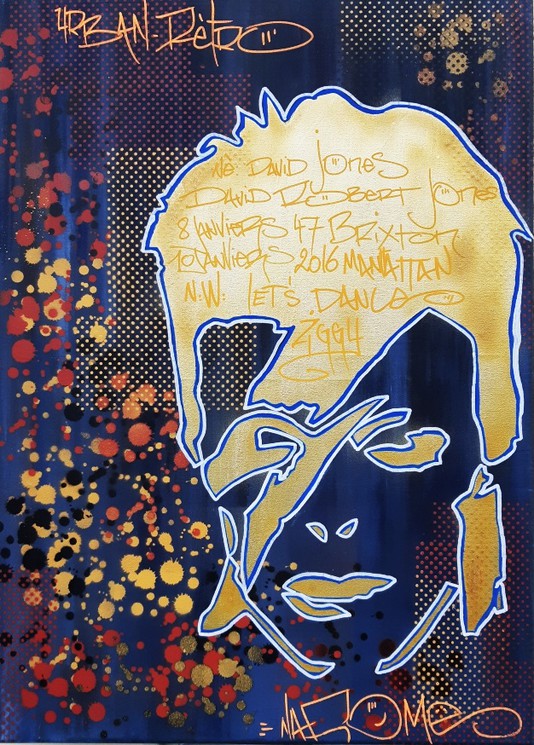 URBAN-Rètro
Né: DAVID JONES
DAVID ROBERT JONES
8 JANVIERS 47 BRIXTON
10 JANVIERS 2016 MANHATTAN
N.W: LET'S DANCE
ZIGGY